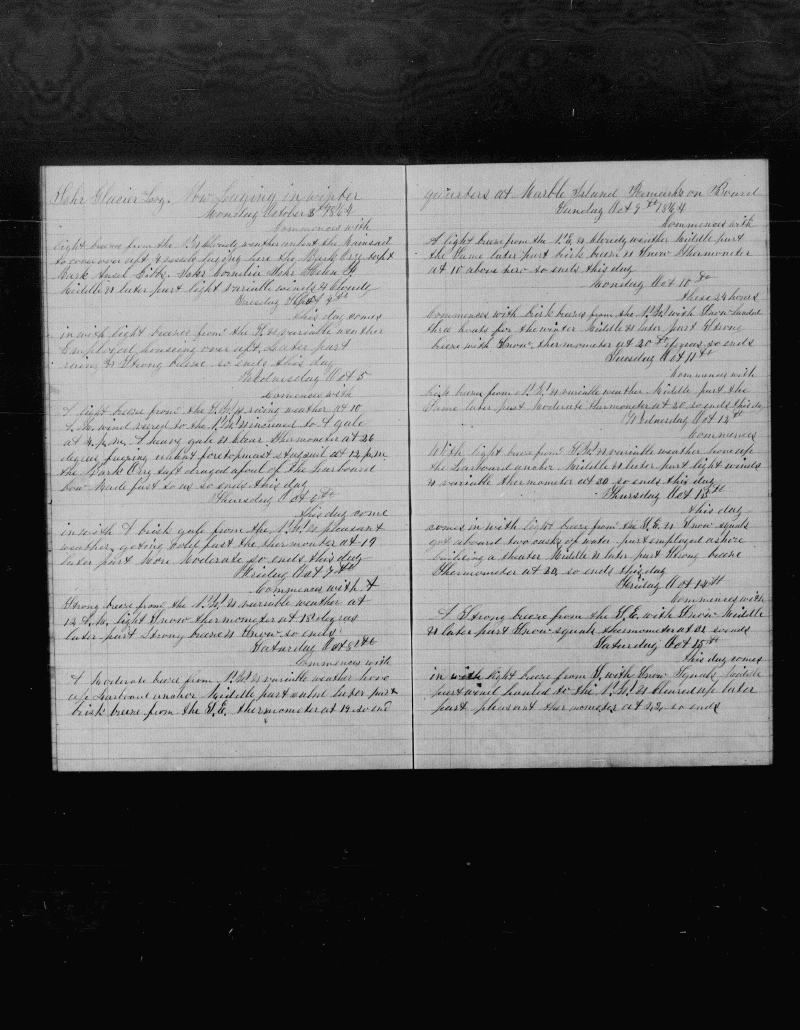 Schr Glacier Log. Now Laying in winter
Monday October 3th 1864
Commences with
light breeze from the N & Cloudy weather unbent the Mainsail
to cover over aft 4 vessels laying here the Bark Orry Taft
Bark Ansel Gibbs Schr Cornelia Schr Helen F
Middle & later part light variable winds & Cloudy
Tuesday Oct 4th
this day comes
in with light breeze from the & variable weather
Employed houseing over aft. Later part
rainy & Strong breese so ends this day
Wednesday Oct 5
Comences with
A light breeze from the & rainy weather at 10
A.M. wind veered to the N.W. & increased to A gale
at 4. p.m. A heavy gale & Clear thermometer at 26
degree foretopmast Staysail at 12 p.m
the Bark Orry taft draged afoul of the Larboard
bow Made fast to us so ends this day
Thursday Oct 6th
this day come
in with A brisk gale from the N.W. & pleasant
weather, fast the thermomter at 17
later part More Moderate so ends this day
Friday Oct 7th
Commences with A
Strong breese from the N.W. & variable weather at
12 light Snow thermometer at 18 degreas
later part Strong breese & Snow so ends
Saturday Oct 8th
Commences with
A Moderate breese from N.W. & variable weather hove
up Larboard anchor Middle part later part
brisk breeze from the S.E. thermometer at 19 so end

quarters at Marble Island Remarks on Board
Sunday Oct 9th 1864
Commences with
A light breese from the N.E. & cloudy weather Middle part
the Same later part brisk breese & Snow Thermometer
at 10 above zero so ends this day
Monday Oct 10th
these 24 hours
Commences with brisk breeses from the N.W. with Snow landed
boats for the winter Middle & later part Strong
breese with Snow, thermometer at 20 so ends
Tuesday Oct 11th
Commences with
brisk breese from N.W. & variable weather Middle part the
Same later part Moderate thermometer at 20 so ends this day
Wednesday Oct 12th
Commences
With light breese from & variable weather hove up
the Larboard anchor Middle & later part light winds
& variable thermometer at 30 so ends this day
Thursday Oct 13th
this day
comes in with light breese from the S.E. & Snow squals
got aboard two casks of water part employed ashore
building a theater Middle & later part Strong breese
Thermometer at 32, so ends this day
Friday Oct 14th
Commences with
A Strong breese from the S.E. with Snow Middle
& later part Snow squals thermometer at 32 so ends
Saturday Oct 15th
this day comes
in with light breese from S, with Snow Squals, Middle
part wind hauled to the N.W. & Cleared up later
part pleasant thermometer at 22, so ends